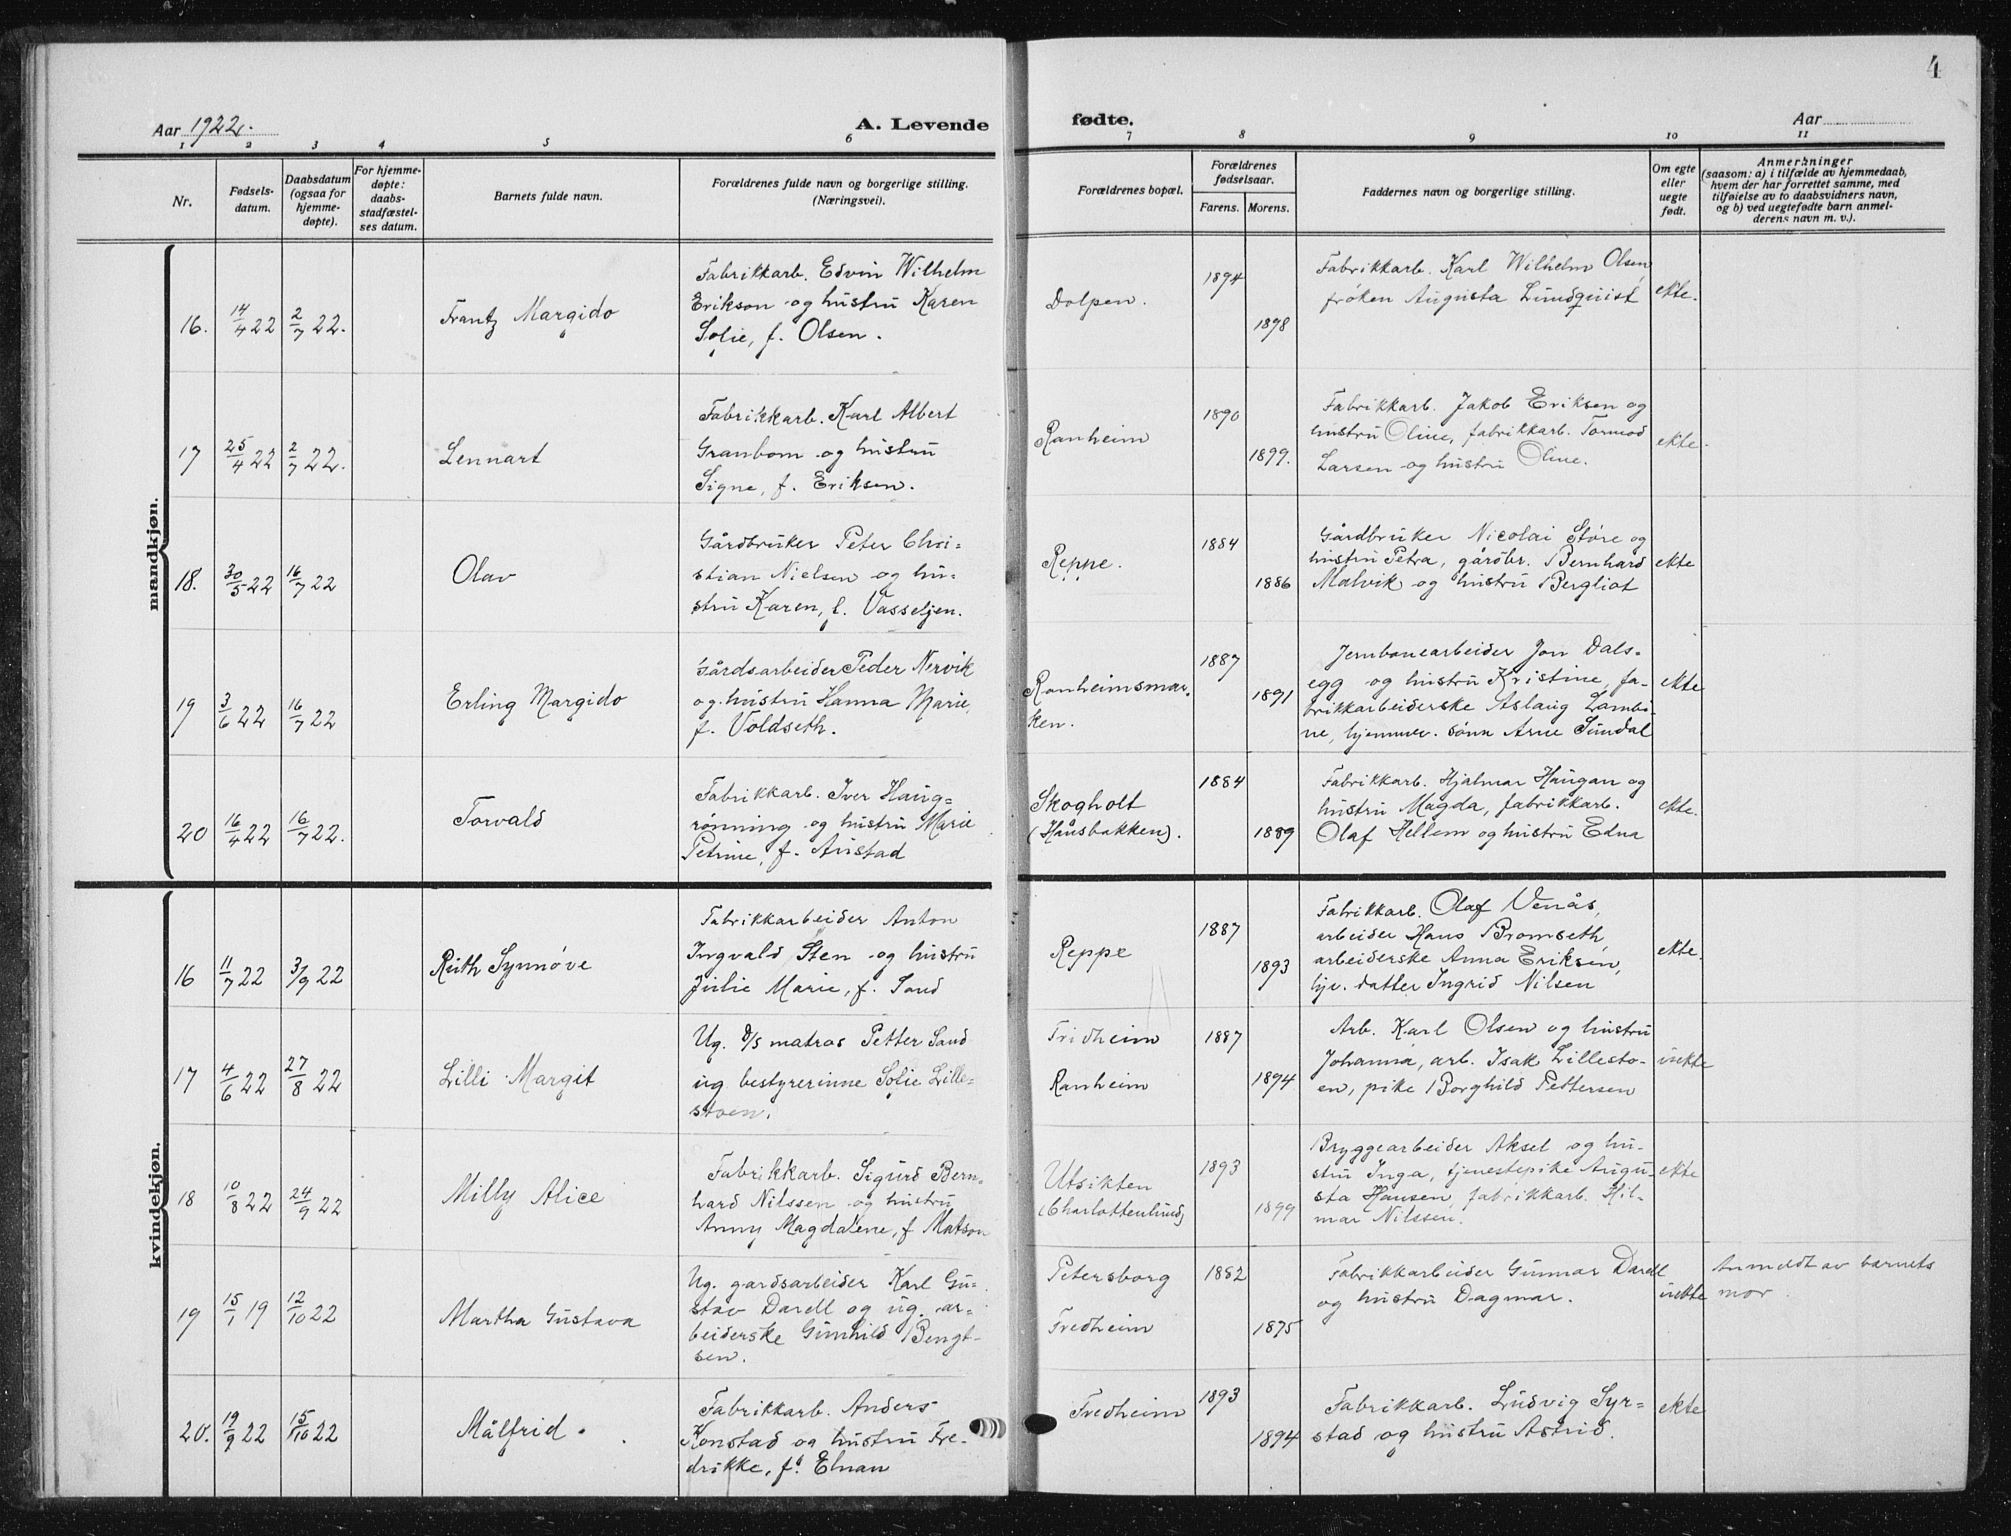 4
Aar 1922.
A. Levende
fødte.
Aar
1 2 3 4 5 6 7 8 9 10 11
Nr.
Fødsels-
datum.
Daabsdatum
(ogsaa for
hjemme-
døpte).
For hjemme-
døpte:
daabs-
stadfæstel-
ses datum.
Barnets fulde navn.
Forældrenes fulde navn og borgerlige stilling.
(Næringsvei).
Forældrenes bopæl.
Forældrenes
fødselsaar.
Farens. Morens.
Faddernes navn og borgerlige stilling.
Om egte
eller
uegte
født.
Anmerkninger
(saasom: a) i tilfælde av hjemmedaab,
hvem der har forrettet samme, med
tilføielse av to daabsvidners navn,
og b) ved uegtefødte barn anmel-
derens navn m. v.).
mandkjøn.
16. 14/4 22 2/7 22. Frantz Margido
Fabrikkarb. Edvin Wilhelm
Erikson og hustru Karen
Solie, f. Olsen.
Dolpen.
1894
1898
Fabrikkarb. Karl Wilhelm Olsen
frøken Augusta Lundquist
ekte.
17 25/4 22 2/7 22. Lennart
Fabrikkarb. Karl Albert
Granbom og hustru
Signe, f. Eriksen.
Ranheim
1890
1899.
Fabrikkarb. Jakob Eriksen og
hustru Oline, fabrikkarb. Tormod
Larsen og hustru Oline.
ekte
18. 30/5 22 16/7 22 Olav
Gårdbruker Peter Chri-
stian Nielsen og hu-
stru Karen, f. Vasseljen.
Reppe.
1884
1886
Gårdbruker Nicolai Støre og
hustru Petra, gårdbr. Bernhard
Malvik og hustru Bergliot
ekte
19 3/6 22 16/7 22 Erling Margido
Gårdsarbeider Peder Nervik
og hustru Hanna Marie,
f. Voldseth.
Ranheimsmar-
ken.
1887
1891
Jernbanearbeider Jon Dals-
egg og hustru Kristine, fa-
brikkarbeiderske Aslaug Lambi-
ne, hjemmev. sønn Arne Sundal
ekte
20 16/4 22 16/7 22. Torvald
Fabrikkarb. Iver Haug-
rønning og hustru Marie
Petrine, f. Aristad
Skogholt
(Håusbakken).
1884
1889
Fabrikkarb. Hjalmar Haugan og
hustru Magda, fabrikkarb.
Olaf Hellem og hustru Edna
ekte.
kvindekjøn.
16 11/7 22 3/9 22 Ruth Synnøve
Fabrikkarbeider Anton
Ingvald Sten og hustru
Julie Marie, f. Sand
Reppe
1887
1893
Fabrikkarb. Olaf Venås,
arbeider Hans Bromseth,
arbeiderske Anna Eriksen,
hjv. datter Ingrid Nilsen
ekte.
17 4/6 22 27/8 22 Lilli Margit
Ug. d/s matros Petter Sand
ug bestyrerinne Solie Lille-
støen.
Fridheim
Ranheim
1887
1894
Arb. Karl Olsen og hustru
Johanna, arb. Isak Lillestø-
en, pike Borghild Pettersen
uekte
18 10/8 22 24/9 22 Milly Alice
Fabrikkarb. Sigurd Bern-
hard Nilssen og hustru
Anny Magdalene, f Matson
Utsikten
(Charlottenlund)
1893
1899
Bryggearbeider Aksel og hu-
stru Inga, tjenestepike Augu-
sta Hansen, fabrikkarb. Hil-
mar Nilssen.
ekte
19 15/1 19 12/10 22 Martha Gustava
Ug. gardsarbeider Karl Gu-
stav Darell og ug. ar-
beiderske Gunhild Bengt-
sen.
Petersborg
Fredheim
1882
1875
Fabrikkarbeider Gunnar Darell
og hustru Dagmar.
uekte
Anmeldt av barnets
mor
20. 19/9 22 15/10 22 Målfrid.
Fabrikkarb. Anders
Konstad og hustru Fre-
drikke, f. Elnan
Fredheim
1893
1894
Fabrikkarb. Ludvig Syr-
stad og hustru Astrid.
ekte